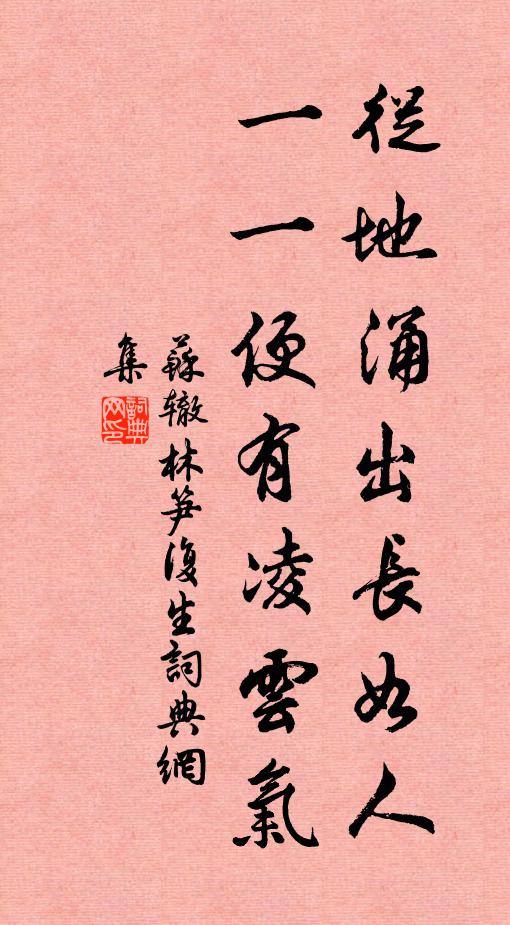 從地涌出長如人
一一便有凌雲氣
蘇辙林笋復生詞典網
集
詞典
网印